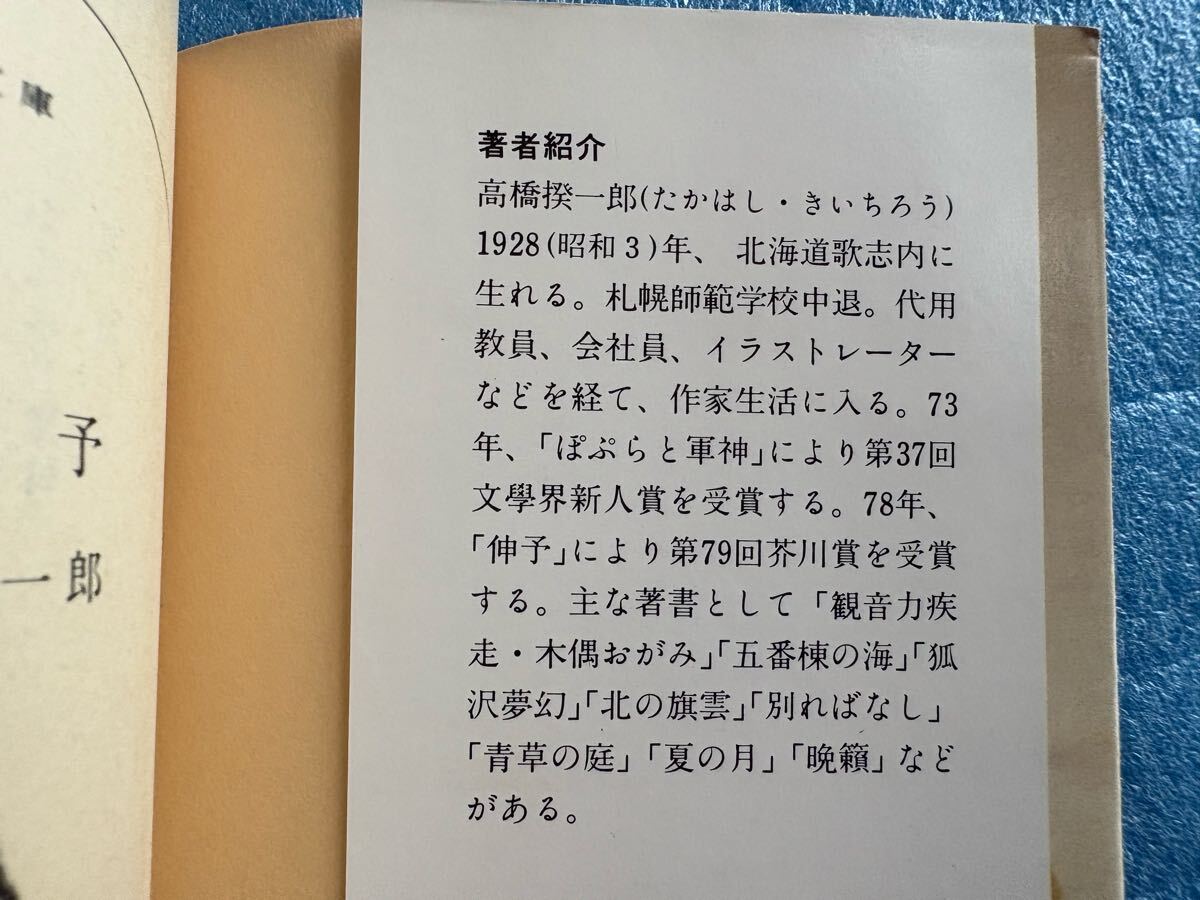 庫
予
一郎
著者紹介
高橋揆一郎(たかはし・きいちろう)
1928(昭和3)年、 北海道歌志内に
生れる。札幌師範学校中退。代用
教員、会社員、イラストレーター
などを経て、作家生活に入る。73
年、「ぽぷらと軍神」により第37回
文學界新人賞を受賞する。78年、
「伸予」により第79回芥川賞を受賞
する。主な著書として「観音力疾
走・木偶おがみ」「五番棟の海」「狐
沢夢幻」「北の旗雲」「別ればなし」
「青草の庭」「夏の月」「晩籟」など
がある。